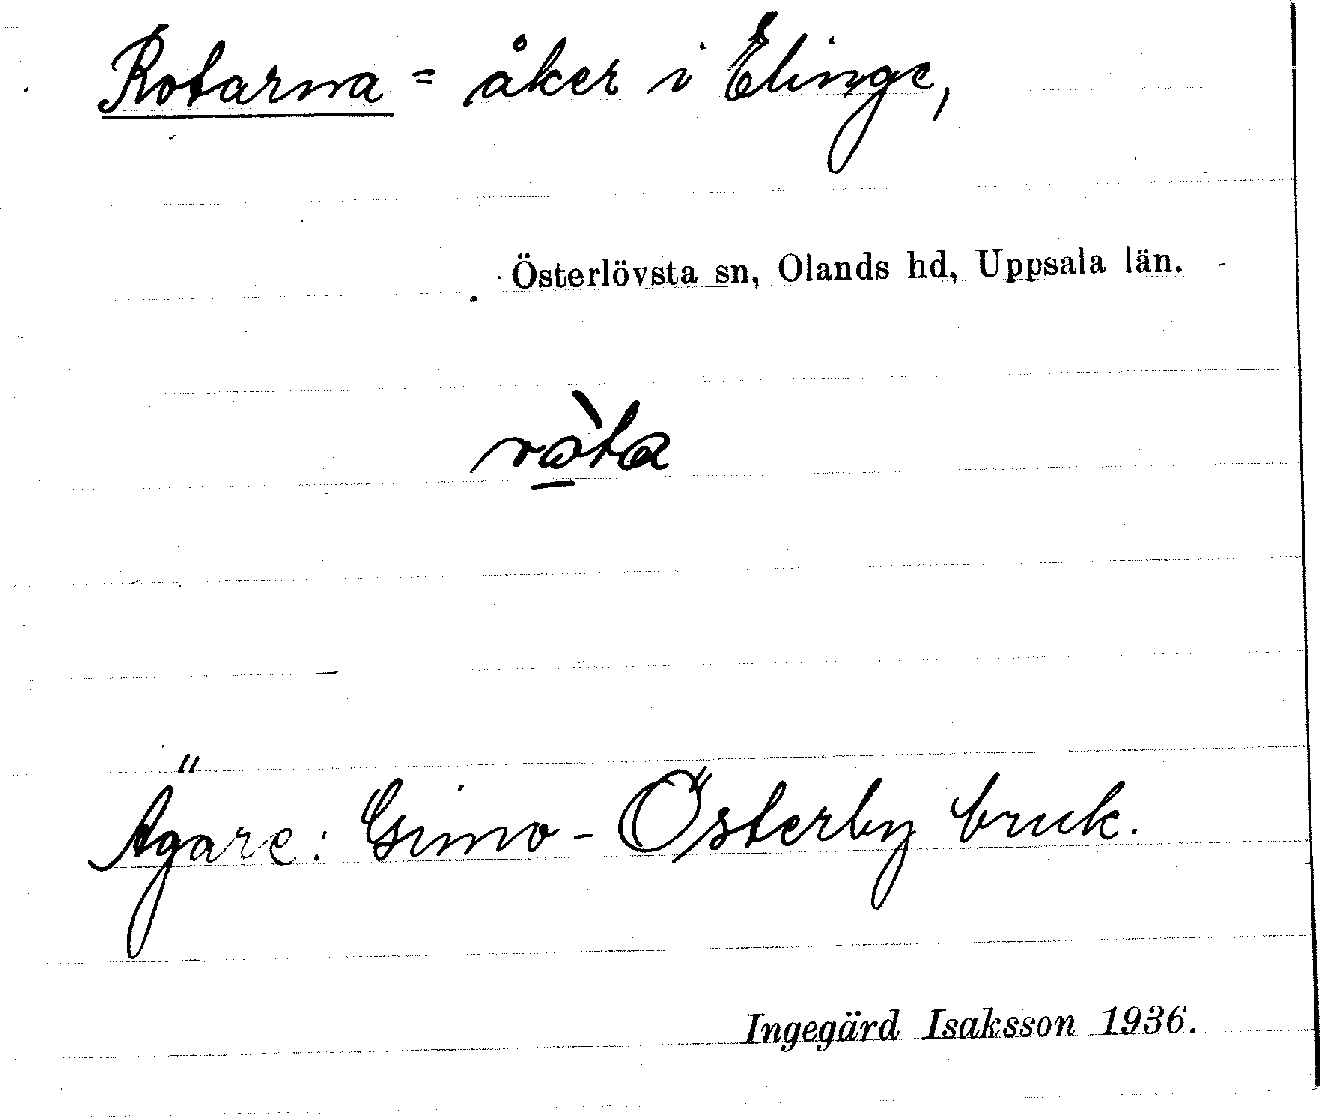 Rotarna = åker i Elinge,
Österlövsta sn, Olands hd, Uppsala län.
rò̱ta
Ägare: Gimo-Österby bruk.
Ingegärd Isaksson 1936.